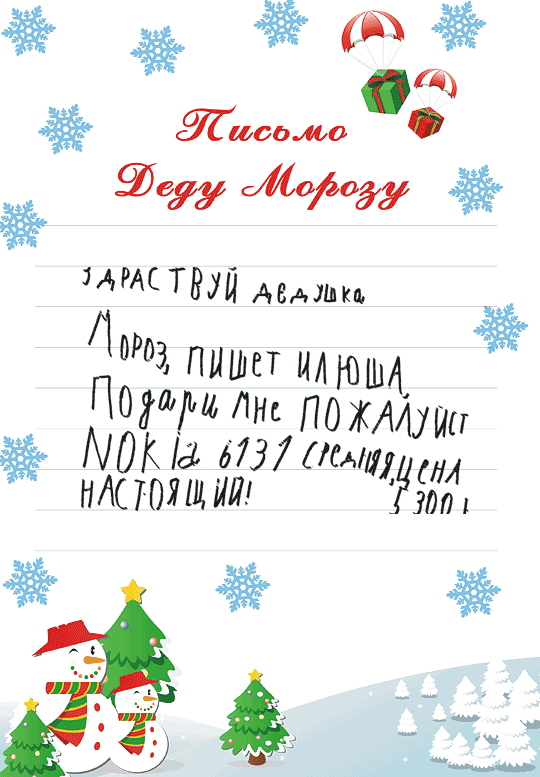 Письмо
Деду Морозу
ЗДРАСТВУЙ дедушка
Мороз, пишет илюша
Подари мне пожалуйст
NOKIa 6131 средняя, цена
НАСТОЯЩИЙ! 5 300 г